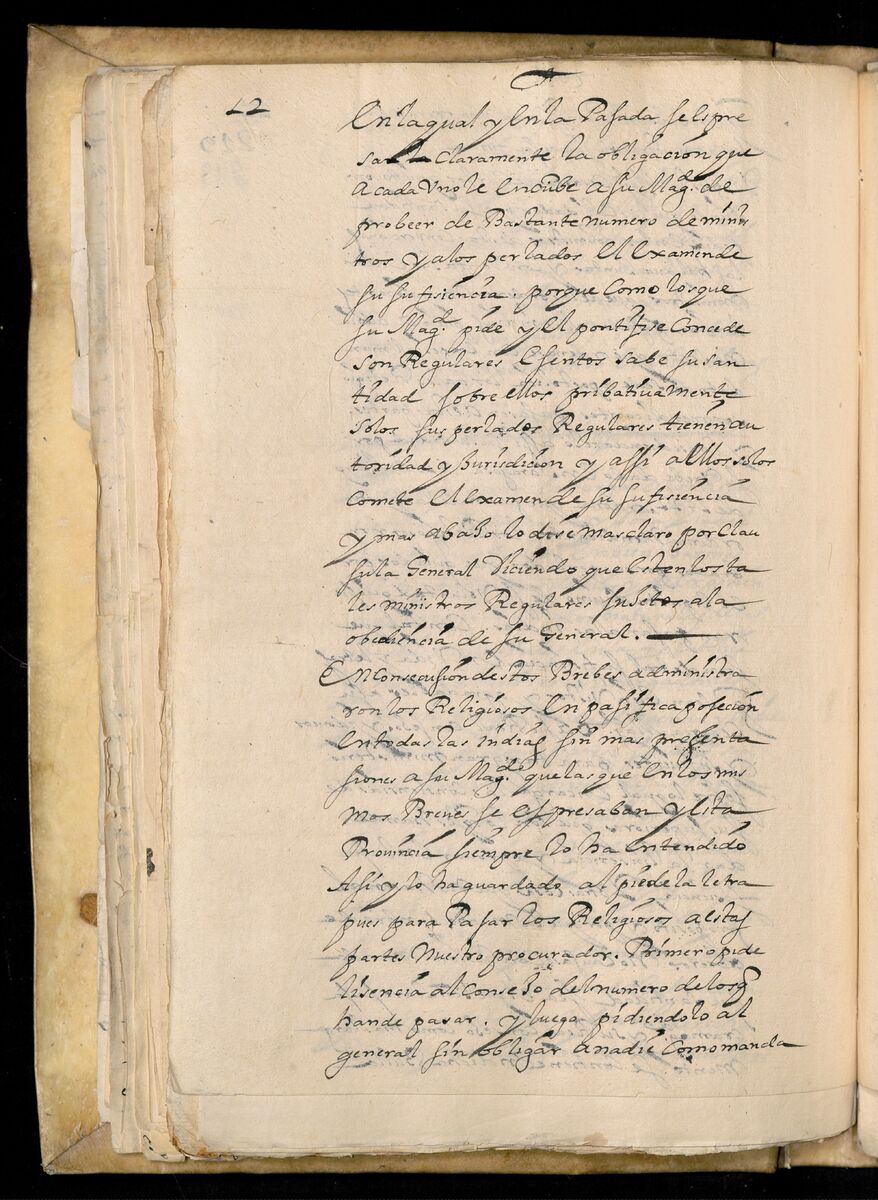 12
En la qual y En la Pasada se Espre
sa la Claramente la obligación que
a cada Uno le Encube a su Magd. de
probeer de Bastante numero de minis
tros y a los perlados El Examen de
su sufisiencia. porque Como los que
su Magd. pide y El pontifise Concede
son Regulares Esentos sabe su san
tidad sobre Ellos pribatiuamente
solos sus perlados Regulares tienen au
toridad y Jurisdicion y assi a Ellos solos
Comete El Examen de su sufisiencia
y mas abajo lo dise mas claro por Clau
sula General Diciendo que Esten los ta
les ministros Regulares sujetos a la
obediencia de su General.
En Consecusion destos Brebes administra
ron los Religiosos En pasifica posecion
En todas las indias sin mas presenta
siones a su Magd. que las que En los mis
mos Breues se Espresaban y Esta
Prouincia siempre lo ha Entendido
Asi y lo ha guardado al pie de la letra
pues para Pasar los Religiosos a Estas
partes Nuestro procurador. Primero pide
lisencia al Consejo del numero de los q
han de pasar. y luego pidiendolo al
general sin obligar a nadie Como manda